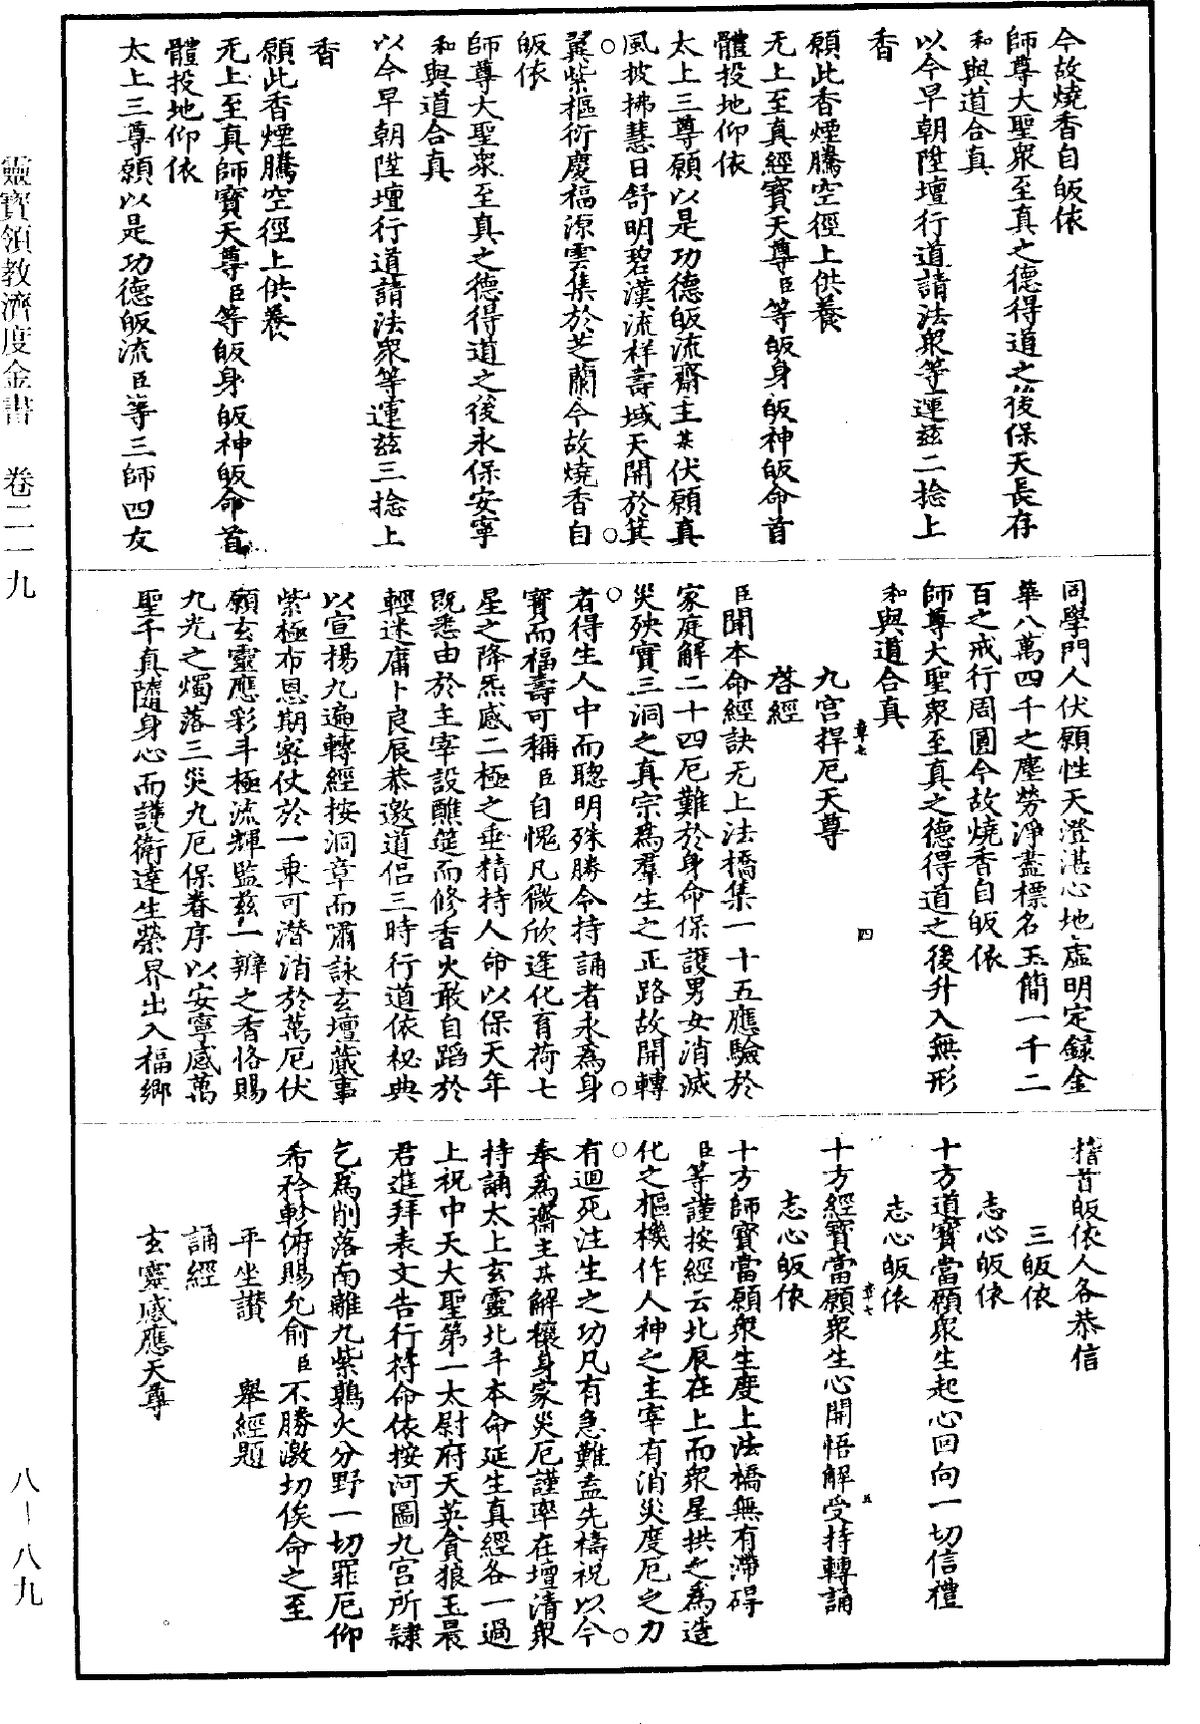 今故燒香自皈依
師尊大聖衆至真之德得道之後保天長存
和與道合真
以今早朝陞壇行道請法衆等運兹二捻上
香
願此香煙騰空徑上供養
无上至真經寶天尊臣等皈身皈神皈命首
體投地仰依
太上三尊願以是功德皈流齋主某伏願真
風披拂慧日舒明碧漢流祥壽域天開於箕
翼紫樞衍慶福源雲集於芝蘭今故燒香自
皈依
師尊大聖衆至真之德得道之後永保安寧
和與道合真
以今早朝陞壇行道請法衆等運兹三捻上
香
願此香煙騰空徑上供養
无上至真師寶天尊臣等皈身皈神皈命首
體投地仰依
太上三尊願以是功德皈流臣等三師四友
同學門人伏願性天澄湛心地虛明定録金
華八萬四千之塵勞淨盡標名玉簡一千二
百之戒行周圓今故燒香自皈依
師尊大聖衆至真之德得道之後升入無形
和與道合真
章七
四
九宮捍厄天尊
啓經
臣聞本命經訣无上法橋集一十五應驗於
家庭解二十四厄難於身命保護男女消滅
災殃實三洞之真宗爲羣生之正路故開轉
者得生人中而聰明殊勝令持誦者永爲身
寶而福壽可稱臣自愧凡微欣逢化育荷七
星之降炁感二極之垂精持人命以保天年
既悉由於主宰設醮筵而修香火敢自蹈於
輕迷庸卜良辰恭邀道侣三時行道依祕典
以宣揚九遍轉經按洞章而嘯詠玄壇蕆事
紫極布恩期密仗於一乘可潜消於萬厄伏
願玄靈應彩斗極流輝監兹一瓣之香恪賜
九光之燭落三災九厄保眷序以安寧感萬
聖千真隨身心而護衛達生榮界出入福鄉
稽首皈依人各恭信
三皈依
志心皈依
十方道寶當願衆生起心回向一切信禮
志心皈依
章七
五
十方經寶當願衆生心開悟解受持轉誦
志心皈依
十方師寶當願衆生度上法橋無有滯碍
臣等謹按經云北辰在上而衆星拱之爲造
化之樞機作人神之主宰有消災度厄之力
有迴死注生之功凡有急難盍先禱祝以今
奉爲齋主某解禳身家災厄謹率在壇清衆
持誦太上玄靈北斗本命延生真經各一過
上祝中天大聖第一太尉府天英貪狼玉晨
君進拜表文告行符命依按河圖九宮所隸
乞爲削落南離九紫鶉火分野一切罪厄仰
希矜軫俯賜允俞臣不勝激切俟命之至
平坐讃　舉經題
誦經
玄靈感應天尊
靈寶領教濟度金書　卷二一九
八－八九